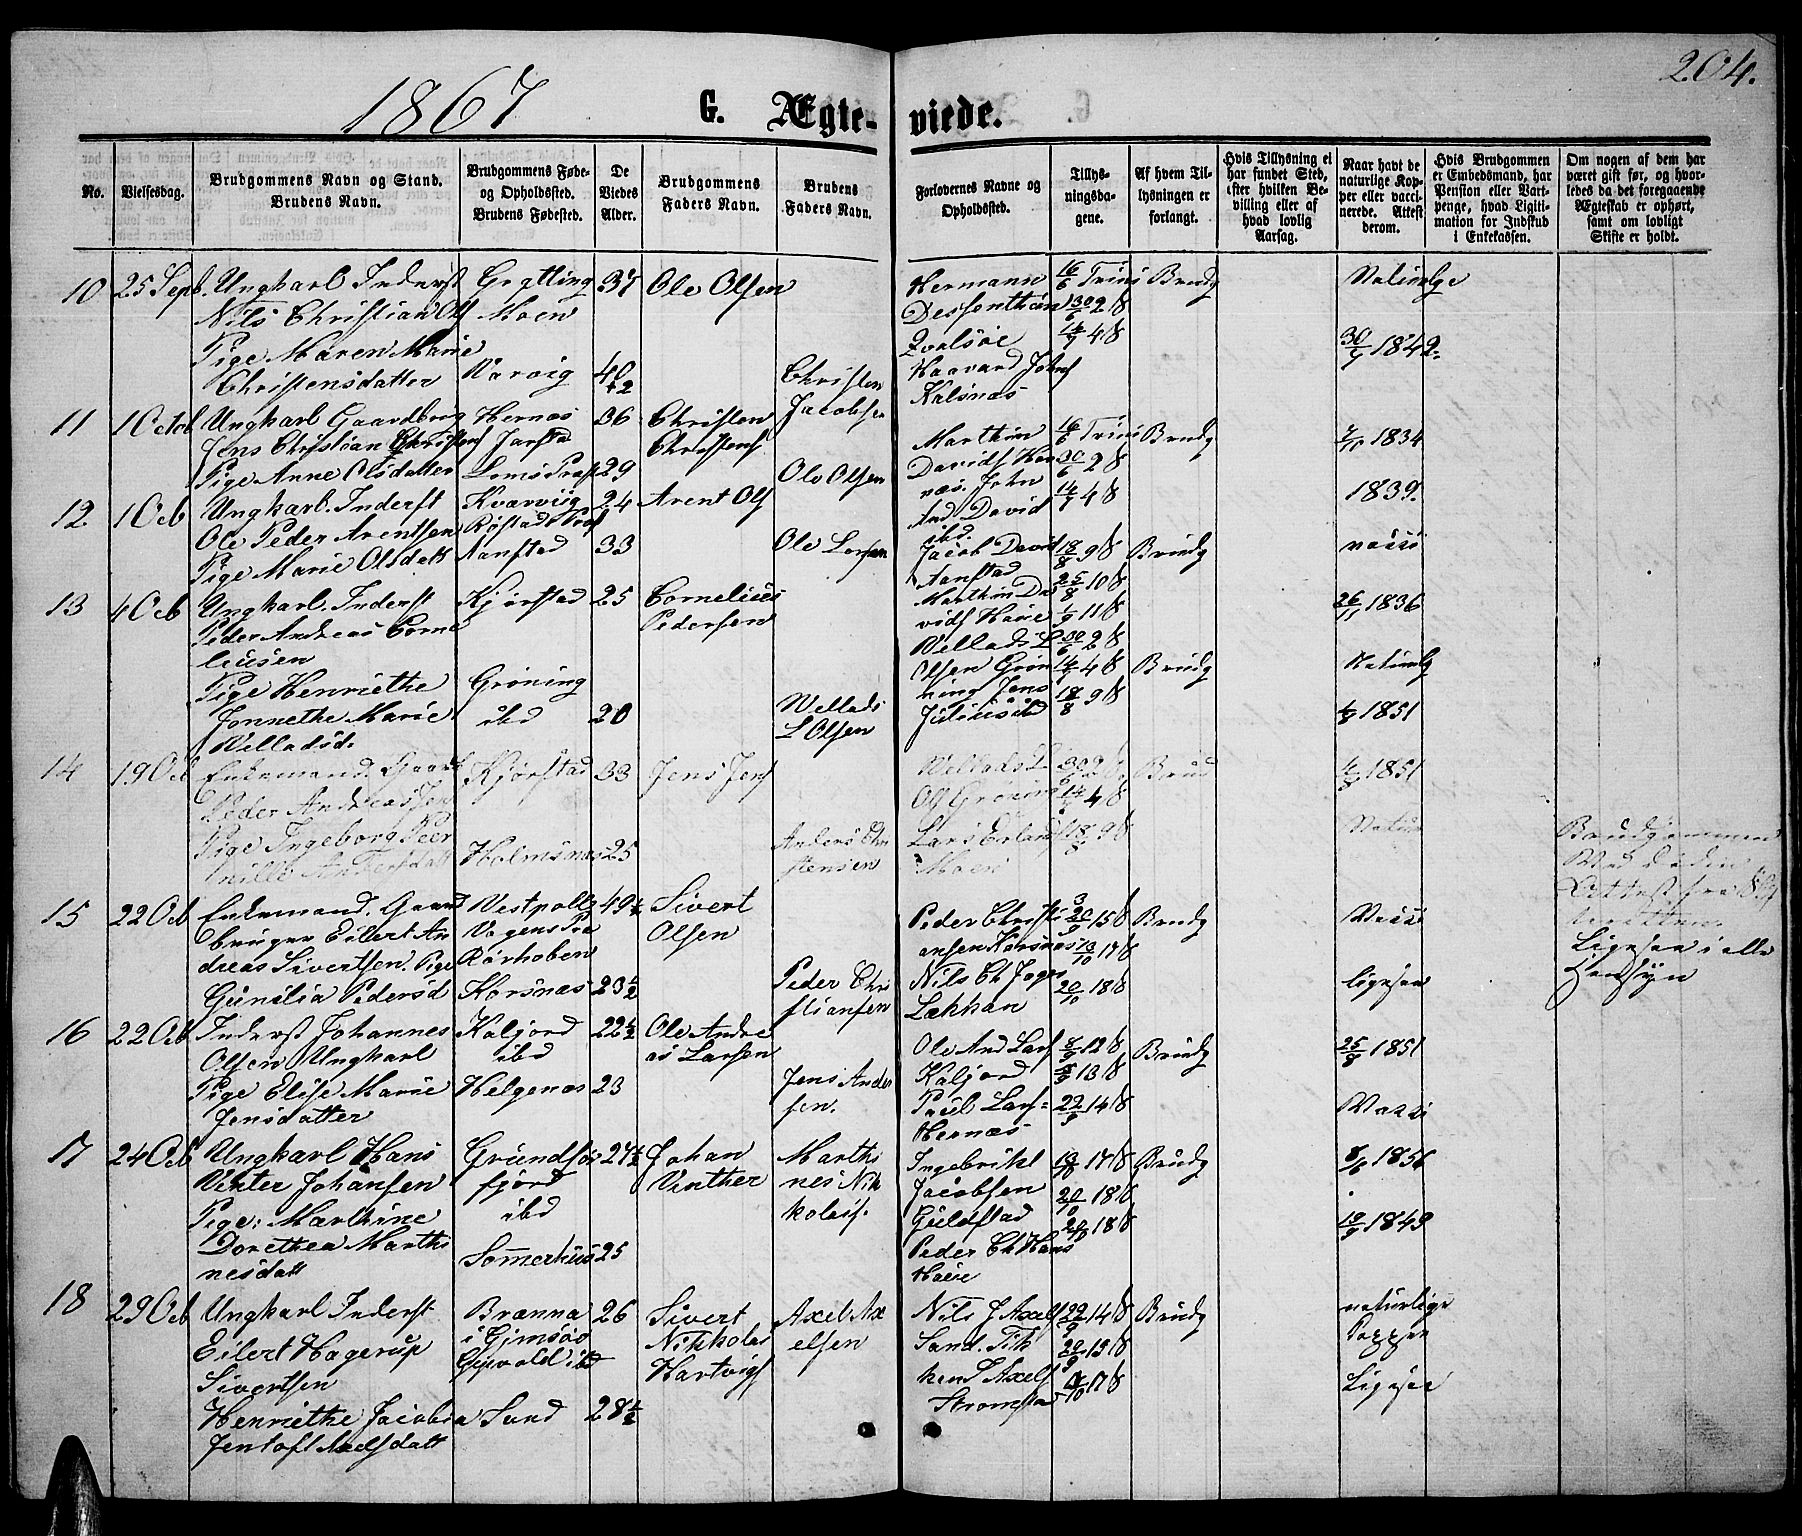 204.
1867
G. Ægte-viede.
No.
Vielsesdag.
Brudgommens Navn og Stand.
Brudens Navn.
Brudgommens Føde-
og Opholdssted.
Brudens Fødested.
De
Viedes
Alder.
Brudgommens
Faders Navn.
Brudens
Faders Navn.
Forlovernes Navne og
Opholdssted.
Tillys-
ningsda-
gene.
Af hvem Til-
lysningen er
forlangt.
Hvis Tillysning ei
har fundet Sted,
ifter hvilken Be-
villing eller af
hvad lovlig
Aarsag.
Naar havt de
naturlige Kop-
per eller vacci-
nerede. Attest
derom.
Hvis Brudgommen
er Embedsmand, har
Pension eller Vart-
penge, hvad Ligiti-
mation for Indskud
i Enkekassen.
Om nogen af dem har
været gift før, og hvor-
ledes da det foregaaende
Ægteskab er ophørt,
samt om lovligt
Skifte er holdt.
10
25 Sept.
Ungkarl Inderst
Nils Christian Ols
Pige Maren Marie
Christensdatter
Grytting
Moen
Varvig
37
40
Ole Olsen
Christen
Jacobsen
Hermann
Qvalsöe
Haavard Johns
Kalsnæs
16/6 Trini
30/6 2 S
14/7 4 S
Brudg
30/7 1842.
11
1 Octob
Ungkarl Gaardbrug
Jens Christian Christens
Pige Anne Olsdatter
Hernæs
Jarsta
Loms Præst
36
29
Christen
Christens
Ole Olsen
Marthin
Davids Her
næs. John
And David
ibd.
16/6 Trini
30/6 2 S
14/7 4 S
Brudg
1834
1839.
12
1 Octb
Ungkarl. Inderst
Ole Peder Arentsen
Pige Marie Olsdatt
Kvarviig
Aanstad
24
33
Arent Ols
Ole Larsen
Jacob David
Aanstad
Marthin Da
vids Haue
18/8 9 S
25/8 10 S
1/9 11 S
Brudg
26/11 1836
13
4 Octb
Ungkarl. Inderst
Peder Andreas Corne
liusen
Pige Henriethe
Jonnethe Marie
Velladsd.
Kjörstad
Gröning
ibd
25
20
Cornelius
Pedersen
Wellads
L Olsen
Vellads L
Olsen Grön
ning Jens
Julius ibd
30/6 2 S
14/7 4 S
18/8 9 S
Brudg
1851
14
19 Octb
Enkemand. Gaard
Peder Andreas Jens
Pige Ingeborg Peer
nille Andersdatt
Kjörstad
Holmsnæs
33
25
Jens Jens
Anders Chri
stensen
Wellads L
Ols Gröning
Lars Erlands
Moen
30/6 2 S
14/7 4 S
18/8 9 S
Brud
1851
Brudgommen
15
22 Octb
Enkemand. Gaard
bruger Eilert An
dreas Sivertsen. Pige
Gunilia Pedersd
Vestpolle
Vogens Præ
Rörhoben
Korsnæs
49 1/2
23 1/2
Sivert
Olsen
Peder Chri
stiansen
Peder Christi
ansen Korsnæs
Nils Ch Jager
Lækhan
15 S
13/10 17 S
20/10 18 S
Brudg
Vacci
ligesaa
Ligesaa i alle
Hensyn
16
22 Octb
Inderst Johannes
Olsen Ungkarl
Pige Elise Marie
Jensdatter
Kaljord
ibd
Helgenæs
22 1/2
23
Ole Andre
as Larsen
Jens Ander
sen.
Ole And Lars
Kaljord
Paul Lars-
Hernæs
8/9 12 S
13 S
22/9 14 S
Brudg
25/8 1851
Vacci
17
24 Octb
Ungkarl Hans
Venter Johansen
Pige: Marthine
Dorethea Marthi
nesdatt
Grundfös
fjord
ibd
Sommerhus
27 1/2
25
Johan
Vinther
Marthi
nes Nik
kolais.
Ingebrikt
Jacobsen
Guldstad
Peder Ch Hans
Haue
13/10 17 S
20/10 18 S
20/10 18 S
Brudg
8/6 1856
10/9 1849
18
29 Octb
Ungkarl Inderst
Eilert Hagerup
Sivertsen
Henriethe Jacobia
Jentoft Axelsdatt
Brænna
i Gimsöe
ibd
Sand
26
28 1/2
Sivert
Nikkolai
Hartvigs
Axel Ax
elsen
Nils J Axels
Sand. Tih
Strömsta
22/9 14 S
29/9 15 S
17 S
Brudg
naturlige
Kopper
Ligesaa